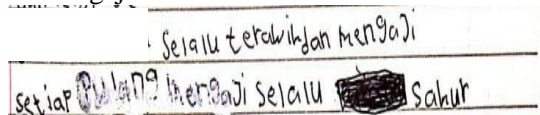 selalu terawih dan mengaji
setiap pulang mengaji selalu sahur